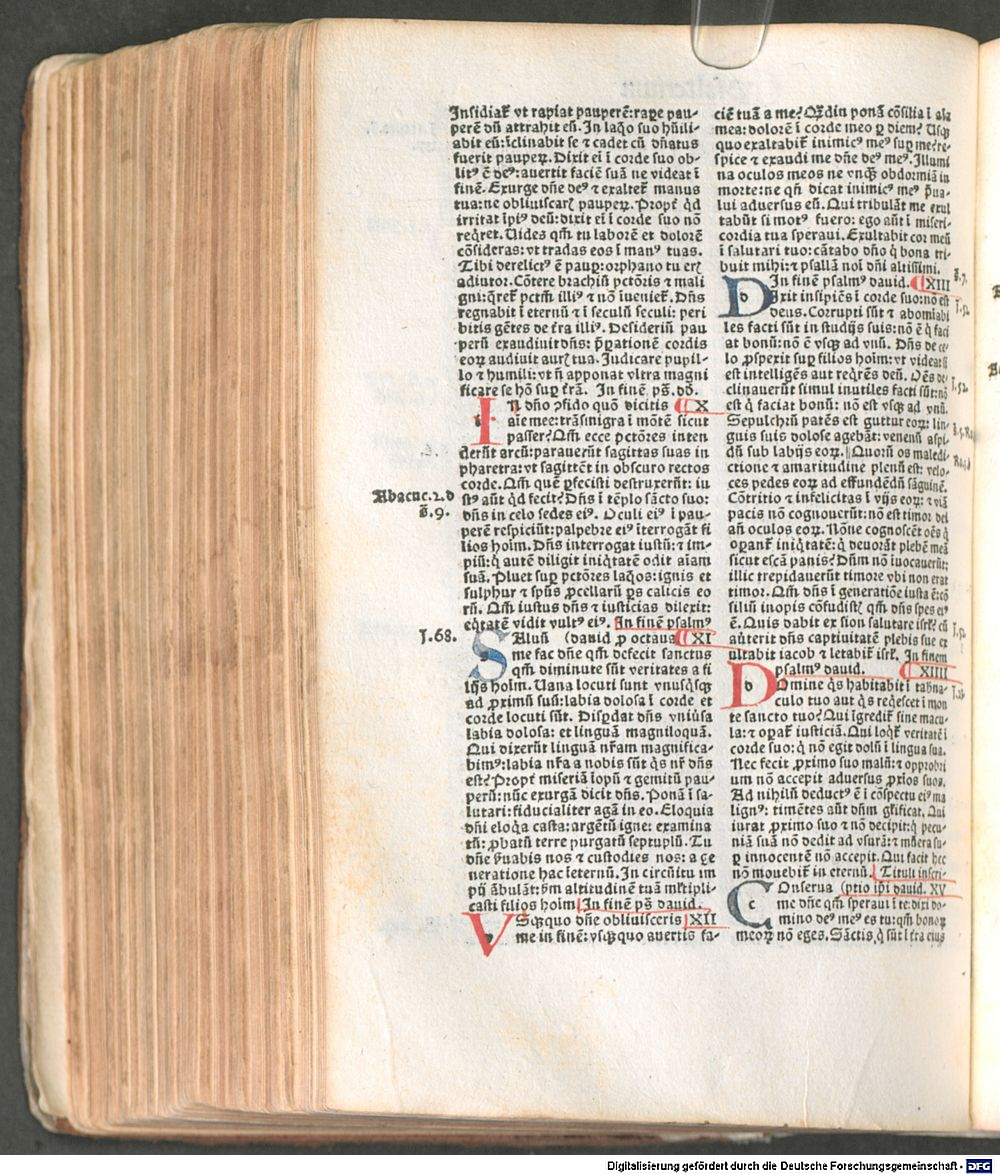 Insidiat᷑ vt rapiat pauperē: rape pau-
perē dū attrahit eū. In laq̊o suo hūili-
abit eū: īclinabit se ⁊ cadet cū dn̄atus
fuerit pauperꝝ. Dixit ei ī corde suo ob-
litꝰ ē deꝰ: auertit faciē suā ne videat ī
finē. Exurge dn̄e deꝰ ⁊ exaltet᷑ manus
tua: ne obliuiscarꝭ pauperꝝ. Propt̄ qd̄
irritat īpiꝰ deū: dixit ei ī corde suo nō
reqret. Uides qm̄ tu laborē et dolorē
cōsideras: vt tradas eos ī manꝰ tuas.
Tibi derelictꝰ ē paup̱: orphano tu erꝭ
adiutor. Cōtere brachiū pctōris ⁊ mali
gni: q̄ret᷑ pctm̄ illiꝰ ⁊ nō īueniet᷑. Dn̄s
regnabit ī eternū ⁊ ī seculū seculi: peri
bitis gētes de t̄ra illiꝰ. Desideriū pau
perū exaudiuit dn̄s: p̄parationē cordis
eoꝝ audiuit aurꝭ tua. Iudicare pupil-
lo ⁊ humili: vt nō apponat vltra magni
ficare se hō sup̱ t̄rā. In finē ps̄. dd̄.
IN dn̄o ꝯfido quō dicitis X
aīe mee: trāsmigra ī mōtē sicut
passer? Qm̄ ecce pctōres inten
derūt arcū: parauerūt sagittas suas in
pharetra: vt sagittēt in obscuro rectos
corde. Qm̄ que p̱fecisti destruxerūt: iu
stꝰ aūt qd̄ fecit? Dn̄s ī tēplo sācto suo:
dn̄s in celo sedes eiꝰ. Oculi eiꝰ ī pau-
perē respiciūt: palpebre eiꝰ īterrogāt fi
lios hoīm. Dn̄s interrogat iustū: ⁊ im-
piū: q̇ autē diligit iniq̇tatē odit aīam
suā. Pluet sup̱ pctōres laq̊os: ignis et
sulphur ⁊ spūs ꝓcellarū p̱s calicis eo
rū. Qm̄ iustus dn̄s ⁊ iusticias dilexit:
eq̇tatē vidit vultꝰ eiꝰ. In finē psalmꝰ
SAluū (dauid ꝓ octaua XI
me fac dn̄e qm̄ defecit sanctus
qm̄ diminute sūt veritates a fi
lijs hoīm. Uana locuti sunt vnusq̇sqꝫ
ad ꝓximū suū: labia dolosa ī corde et
corde locuti sūt. Disp̱dat dn̄s vniūsa
labia dolosa: et linguā magniloquā.
Qui dixerūt linguā nr̄am magnifica-
bimꝰ: labia nr̄a a nobis sūt q̇s nr̄ dn̄s
est? Propt̄ miseriā iopū ⁊ gemitū pau-
perū: nūc exurgā dicit dn̄s. Ponā ī sa-
lutari: fiducialiter agā in eo. Eloquia
dn̄i eloq̇a casta: argētū igne: examina
tū: ꝓbatū terre purgatū septuplū. Tu
dn̄e ẜuabis nos ⁊ custodies nos: a ge
neratione hac īeternū. In circūitu im
pij ābulāt: ẜm altitudinē tuā ml̄tipli-
casti filios hoīm. In finē ps̄ dauid.
VSqꝫquo dn̄e obliuisceris XII
me in finē: vsqꝫquo auertis fa-
Abacuc.2.d
ẜ.9.
J.68.
ciē tuā a me? Qͣdiu ponā cōsilia ī aīa
mea: dolorē ī corde meo p̱ diem? Usqꝫ
quo exaltabit᷑ inimicꝰ meꝰ sup̱ me? re-
spice ⁊ exaudi me dn̄e deꝰ meꝰ. Illumi
na oculos meos ne vnqͣꝫ obdormiā in
morte: ne qn̄ dicat inimicꝰ meꝰ p̄ua-
lui aduersus eū. Qui tribulāt me exul
tabūt si motꝰ fuero: ego aūt ī miseri-
cordia tua speraui. Exultabit cor meū
ī salutari tuo: cātabo dn̄o q̇ bona tri-
buit mihi: ⁊ psallā noī dn̄i altissimi.
In finē psalmꝰ dauid. XIII
DIxit insipiēs ī corde suo: nō est
deus. Corrupti sūt ⁊ abomiabi
les facti sūt in studijs suis: nō ē q̇ faci
at bonū: nō ē vsqꝫ ad vnū. Dn̄s de ce-
lo ꝓspexit sup̱ filios hoīm: vt videat si
est intelligēs aut req̄rēs deū. Oēs de-
clinauerūt simul inutiles facti sūt: nō
est q̇ faciat bonū: nō est vsqꝫ ad vnū.
Sepulchrū patēs est guttur eoꝝ: lin-
guis suis dolose agebāt: venenū aspi-
dū sub labijs eoꝝ. Quorū os maledi-
ctione ⁊ amaritudine plenū est: velo-
ces pedes eoꝝ ad effundēdū sāguinē.
Cōtritio ⁊ infelicitas ī vijs eoꝝ: ⁊ viā
pacis nō cognouerūt: nō est timor dei
an̄ oculos eoꝝ. Nōne cognoscēt oēs q̇
oꝑant᷑ iniq̇tatē: q̇ deuorāt plebē meā
sicut escā panis? Dn̄m nō īuocauerūt:
illic trepidauerūt timore vbi non erat
timor. Qm̄ dn̄s ī generatiōe iusta ē: cō
siliū inopis cōfudistꝭ qm̄ dn̄s spes eiꝰ
ē. Quis dabit ex sion salutare isrl̄? cū
aūterit dn̄s captiuitatē plebis sue ex
ultabit iacob ⁊ letabit᷑ isrl̄. In finem
psalmꝰ dauid. XIIII
DOmine q̇s habitabit ī tab̄na-
culo tuo aut q̇s req̇escet ī mon
te sancto tuo? Qui īgredit᷑ sine macu-
la: ⁊ oꝑat᷑ iusticiā. Qui loq̇t᷑ veritatē ī
corde suo: q̇ nō egit dolū ī lingua sua.
Nec fecit ꝓximo suo malū: ⁊ opprobri
um nō accepit aduersus ꝓxīos suos.
Ad nihilū deductꝰ ē ī cōspectu eiꝰ ma
lignꝰ: timētes aūt dn̄m gl̄ificat. Qui
iurat ꝓximo suo ⁊ nō decipit: q̇ pecu-
niā suā nō dedit ad vsurā: ⁊ mūera su-
p̱ innocentē nō accepit. Qui facit hec
nō mouebit᷑ in eternū. Tituli inscri-
COnserua (ptio ip̄i dauid. XV
me dn̄e qm̄ speraui ī te: dixi do-
mino deꝰ meꝰ es tu: qm̄ bonoꝝ
meoꝝ nō eges. Sāctis q̇ sūt ī t̄ra eius
J.52.
Digitalisierung gefördert durch die Deutsche Forschungsgemeinschaft - DFG